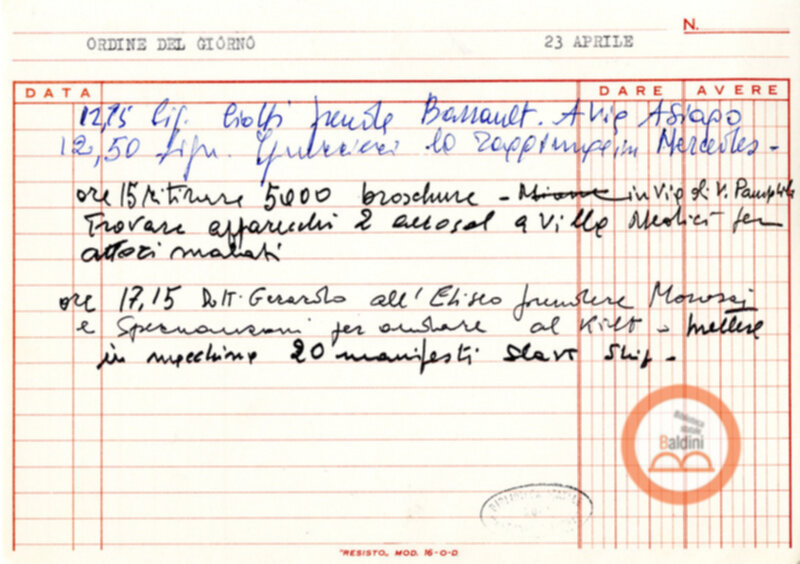 N.
ORDINE DEL GIORNO 23 APRILE
DATA DARE AVERE
12,15 Sig. Ciolfi prende Barrault. A Via Asiago
12,50 Sign. Guerrieri lo raggiunge in Mercedes -
ore 15 ritirare 5000 broschure - in Via di V. Pamphili
Trovare apparecchi 2 aerosol a Villa Medici per
attori malati
ore 17,15 Dott. Gerardo all'Eliseo prendere
e per andare al Kilt - mettere
in macchina 20 manifesti Slave Ship -
Biblioteca
statale
Baldini
"RESISTO" MOD. 16-O-D